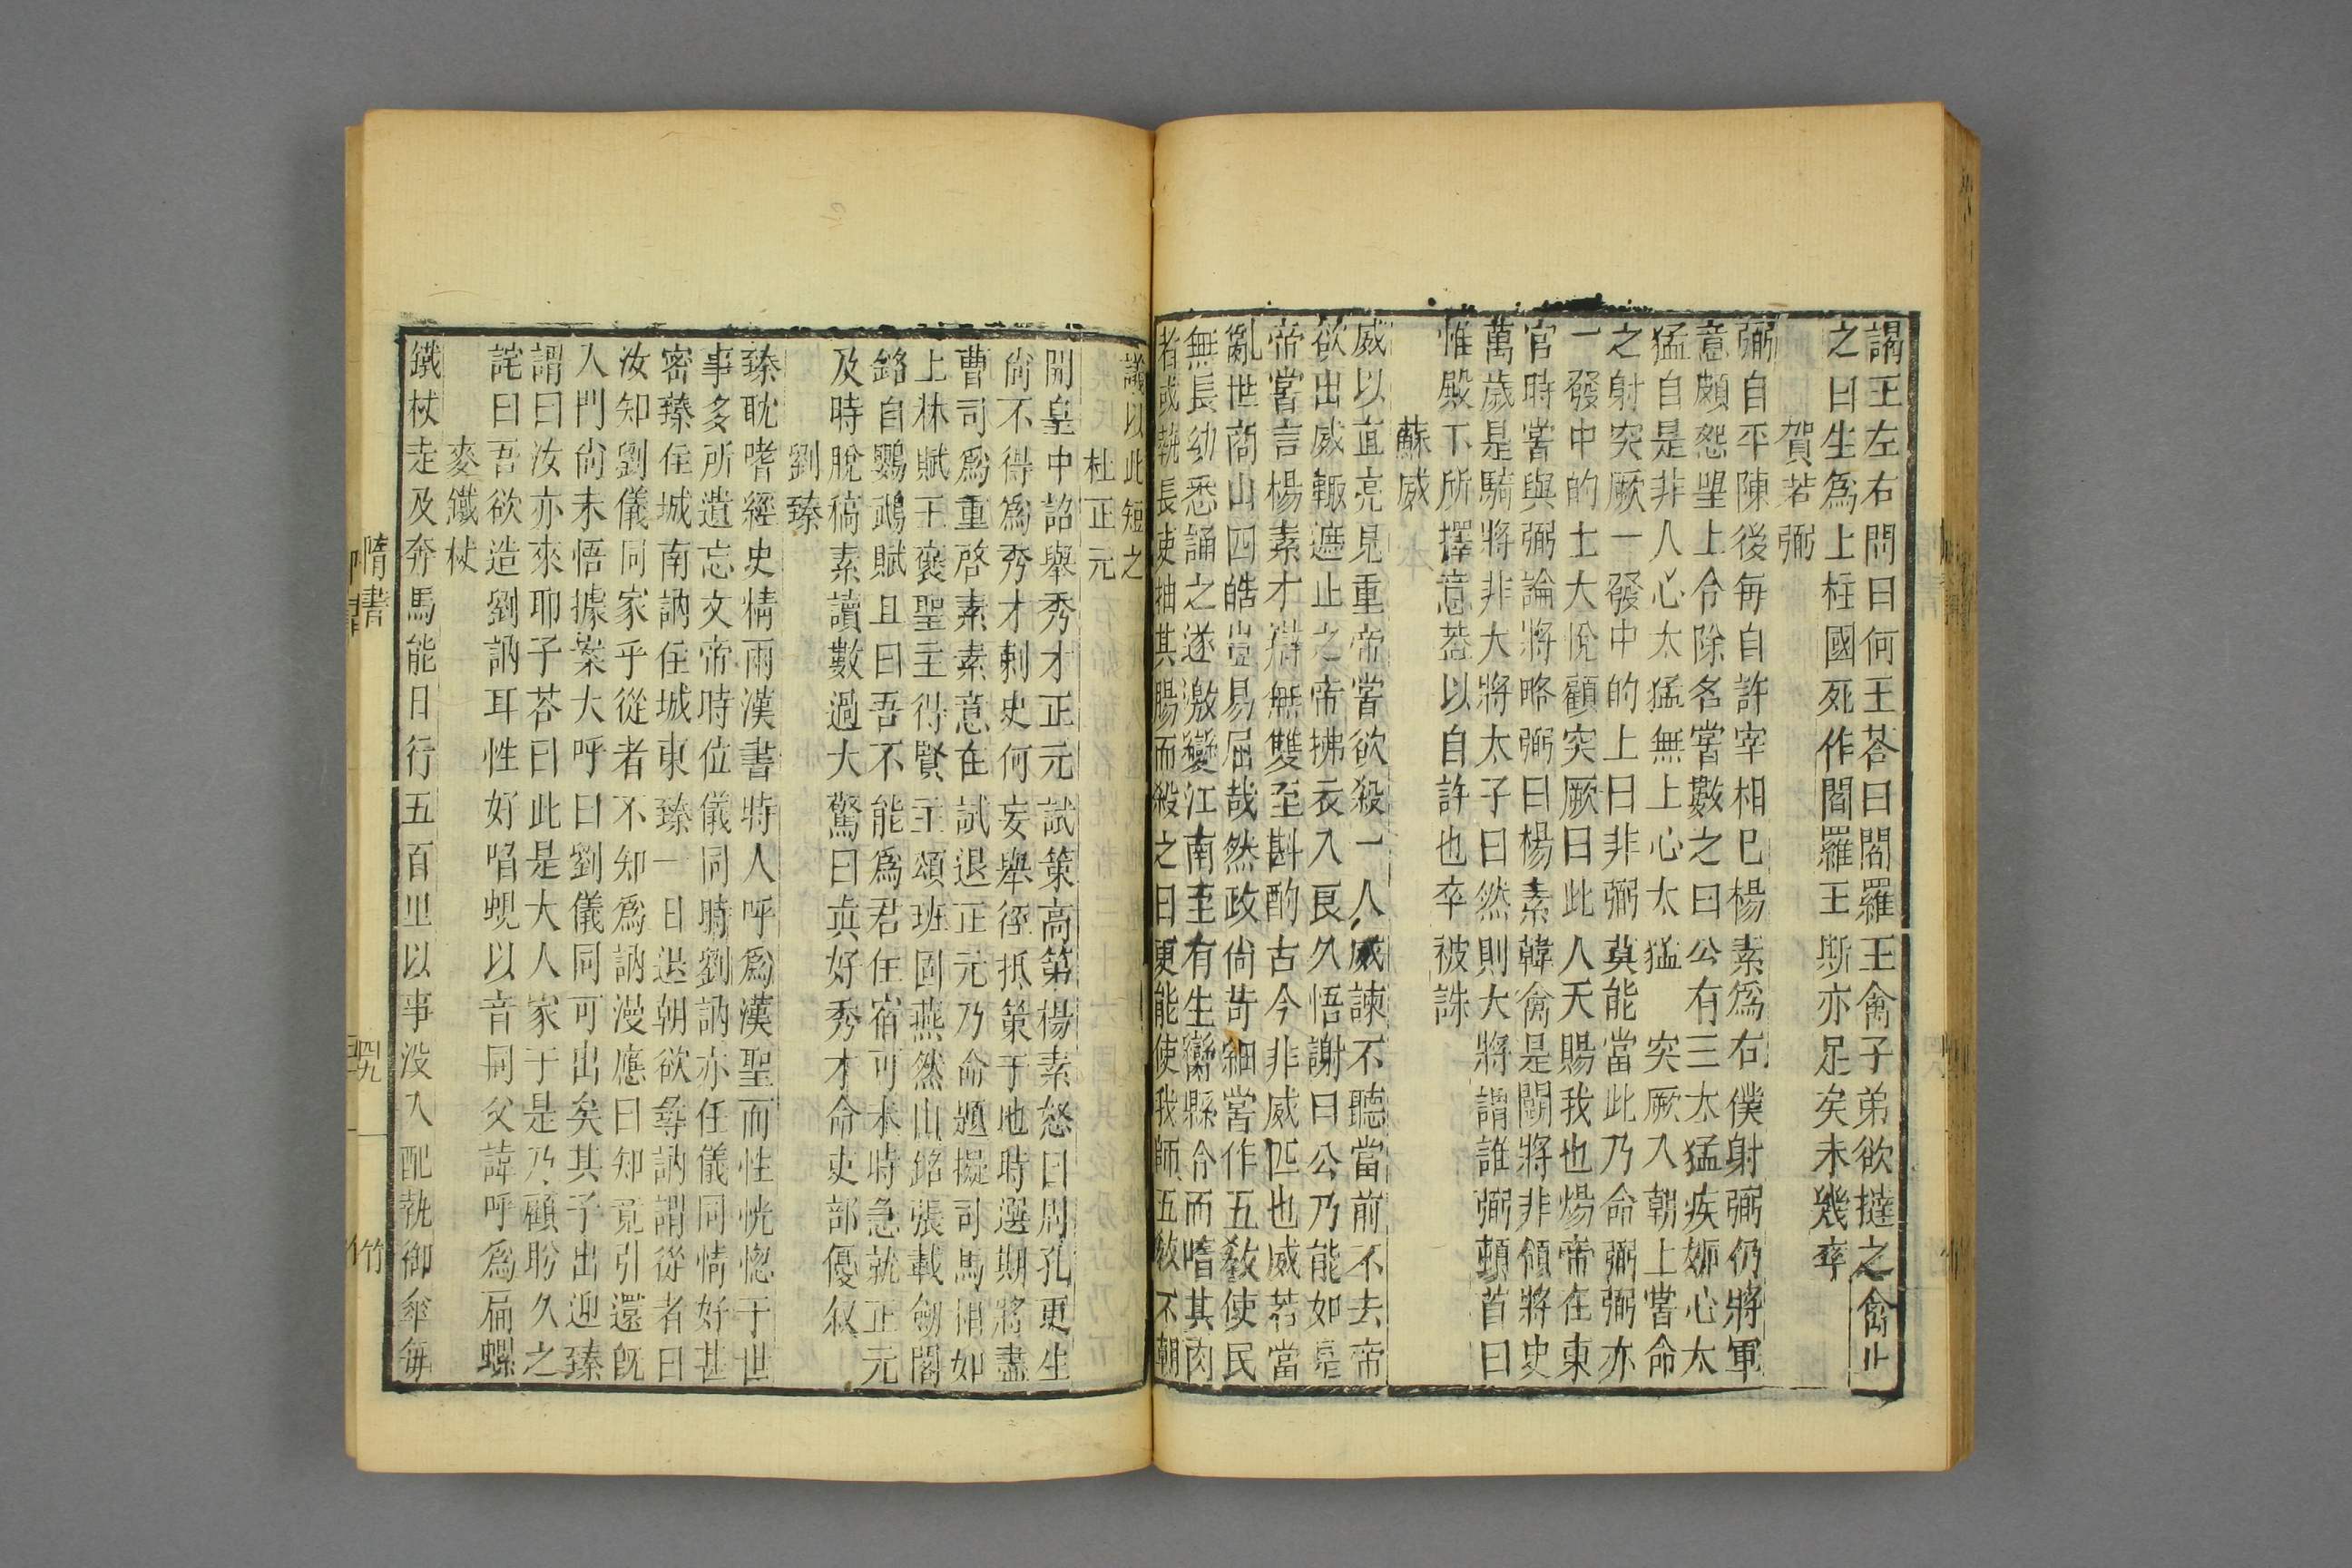 謁王左右問曰何王荅曰閻羅王禽子弟欲撻之禽止
之曰生爲上柱國死作閻羅王斯亦足矣未幾卒
賀若弼
弼自平陳後每自許宰相已楊素爲右僕射弼仍將軍
意頗怨望上令除名嘗數之曰公有三太猛疾妬心太
猛自是非人心太猛無上心太猛 突厥入朝上嘗命
之射突厥一發中的上曰非弼莫能當此乃命弼弼亦
一發中的士大悅顧突厥曰此人天賜我也煬帝在東
官時嘗與弼論將略弼曰楊素韓禽是鬬將非領將史
萬歲是騎將非大將太子曰然則大將謂誰弼頓首曰
惟殿下所擇意葢以自許也卒被誅
蘇威
威以直亮見重帝嘗欲殺一人威諫不聽當前不去帝
欲出威輙遮止之帝拂衣入良久悟謝曰公乃能如是
帝嘗言楊素才辯無雙至斟酌古今非威匹也威若當
亂世商山四皓豈易屈哉然政尙苛細嘗作五敎使民
無長幼悉誦之遂激變江南至有生臠縣令而啗其肉
者或執長吏抽其腸而殺之曰更能使我師五敎不朝
議以此短之
杜正元
開皇中詔舉秀才正元試策高第楊素怒曰周孔更生
尙不得爲秀才刺史何妄舉徑抵策于地時選期將盡
曹司爲重啓素素意在試退正元乃命題擬司馬相如
上林賦王褒聖主得賢主頌班固燕然山銘張載劍閣
銘自鸚鵡賦且曰吾不能爲君住宿可本時急就正元
及時脫稿素讀數過大驚曰眞好秀才命吏部優叙
劉臻
臻耽嗜經史精兩漢書時人呼爲漢聖而性恍惚于世
事多所遺忘文帝時位儀同時劉訥亦任儀同情好甚
密臻住城南訥住城東臻一日退朝欲尋訥謂從者曰
汝知劉儀同家乎從者不知爲訥漫應曰知竟引還旣
入門尙未悟據案大呼曰劉儀同可出矣其子出迎臻
謂曰汝亦來耶子荅曰此是大人家于是乃顧盼久之
詫曰吾欲造劉訥耳性好啗蜆以音同父諱呼爲扁螺
麥鐵杖
鐵杖走及奔馬能日行五百里以事没入配執御傘每
隋書
四九
竹